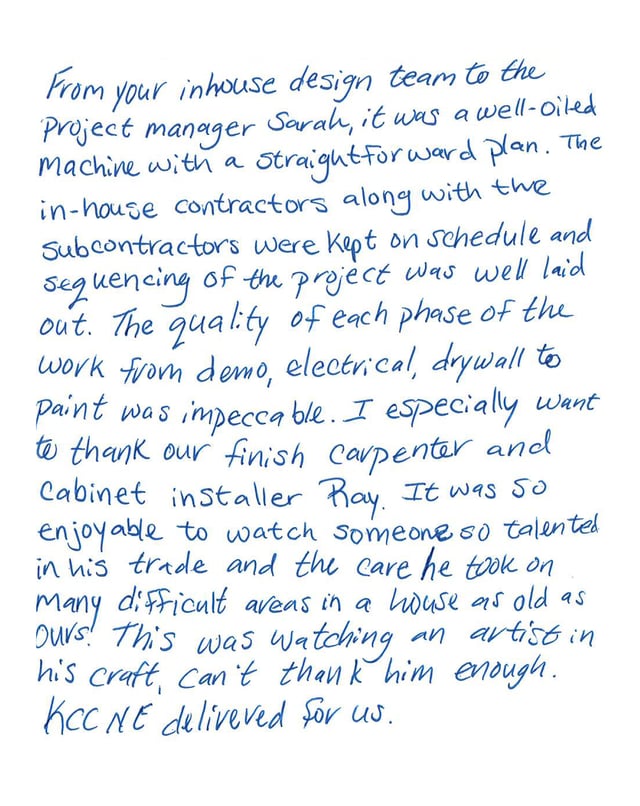 From your inhouse design team to the
Project manager Sarah, it was a well-oiled
Machine with a straightforward plan. The
in-house contractors along with the
subcontractors were kept on schedule and
sequencing of the project was well laid
out. The quality of each phase of the
work from demo, electrical, drywall to
paint was impeccable. I especially want
to thank our finish carpenter and
cabinet installer Ray. It was so
enjoyable to watch someone so talented
in his trade and the care he took on
many difficult areas in a house as old as
ours! This was watching an artist in
his craft, can't thank him enough.
KCCNE delivered for us.